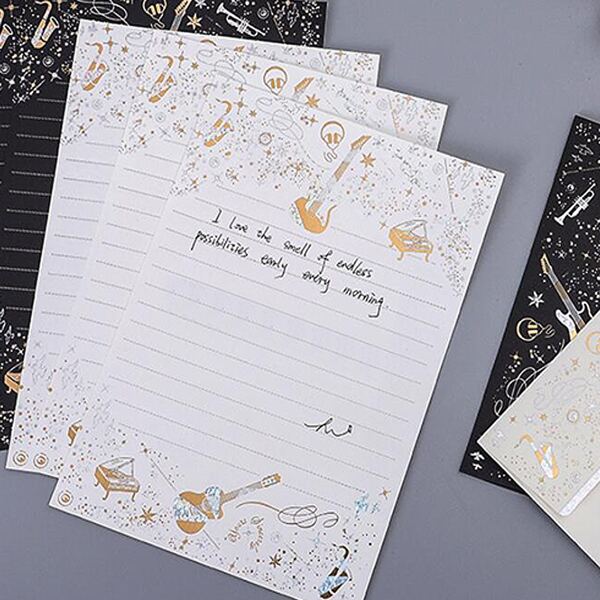 I love the smell of endless
possibilities early every morning